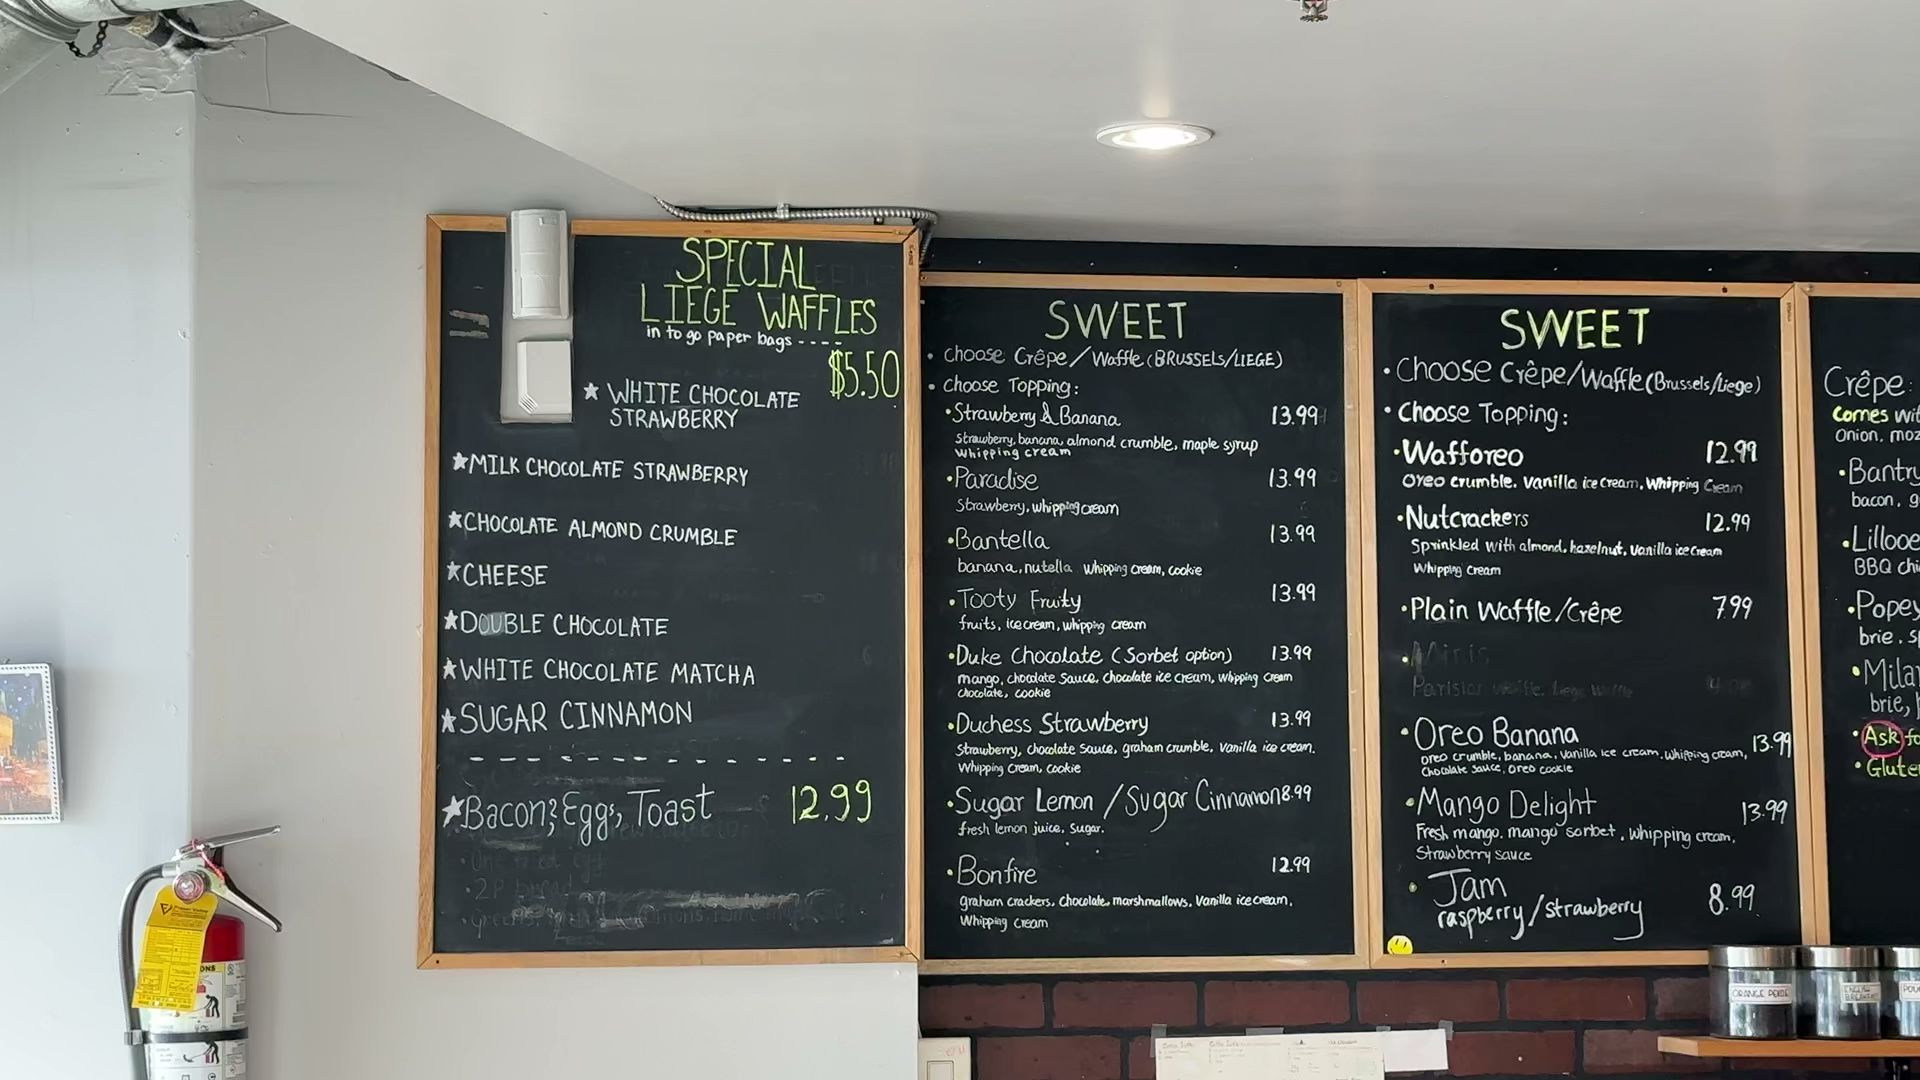 SPECIAL
LIEGE WAFFLES
in to go paper bags ----
$5.50
★ WHITE CHOCOLATE
STRAWBERRY
★MILK CHOCOLATE STRAWBERRY
★CHOCOLATE ALMOND CRUMBLE
★CHEESE
★DOUBLE CHOCOLATE
★WHITE CHOCOLATE MATCHA
★SUGAR CINNAMON
★Bacon, Egg, Toast 12.99
SWEET
• Choose Crêpe/Waffle (BRUSSELS/LIEGE)
• Choose Topping:
•Strawberry & Banana 13.99
Strawberry, banana, almond crumble, maple syrup
Whipping cream
•Paradise 13.99
Strawberry, whipping cream
•Bantella 13.99
banana, nutella Whipping cream, cookie
•Tooty Fruity 13.99
fruits, ice cream, whipping cream
•Duke Chocolate (Sorbet option) 13.99
mango, chocolate sauce, chocolate ice cream, Whipping Cream
chocolate, cookie
•Duchess Strawberry 13.99
Strawberry, chocolate sauce, graham crumble, Vanilla ice cream,
Whipping Cream, cookie
•Sugar Lemon /Sugar Cinnamon 8.99
fresh lemon juice, Sugar.
•Bonfire 12.99
graham crackers, chocolate, marshmallows, Vanilla ice cream,
Whipping Cream
SWEET
• Choose Crêpe/Waffle (Brussels/Liege)
• Choose Topping:
•Wafforeo 12.99
Oreo crumble, Vanilla ice cream, Whipping Cream
•Nutcrackers 12.99
Sprinkled with almond, hazelnut, Vanilla ice cream
Whipping Cream
•Plain Waffle/Crêpe 7.99
•Minis
•Oreo Banana 13.99
Oreo crumble, banana, Vanilla ice cream, Whipping cream,
Chocolate sauce, Oreo cookie
•Mango Delight 13.99
Fresh mango, mango sorbet, Whipping cream,
Strawberry sauce
• Jam 8.99
raspberry/strawberry
Crêpe:
Comes
Onion,
•Bantry
bacon,
BBQ
•Popey
brie,
brie,
•Ask
ORANGE PEKOE